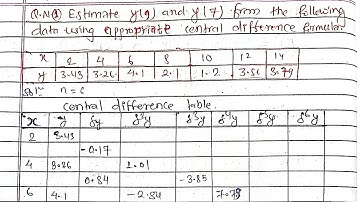 Q.N.① Estimate y(9) and y(7) from the following
data using appropriate central difference formula.
x 2 4 6 8 10 12 14
y 3.43 3.26 4.1 2.1 1.2 3.79
solⁿ n = 6
central difference table.
x y δy δ²y δ³y δ⁴y δ⁵y δ⁶y
2 3.43
-0.17
4 3.26 1.01
0.84 -3.85
6 4.1 -2.84